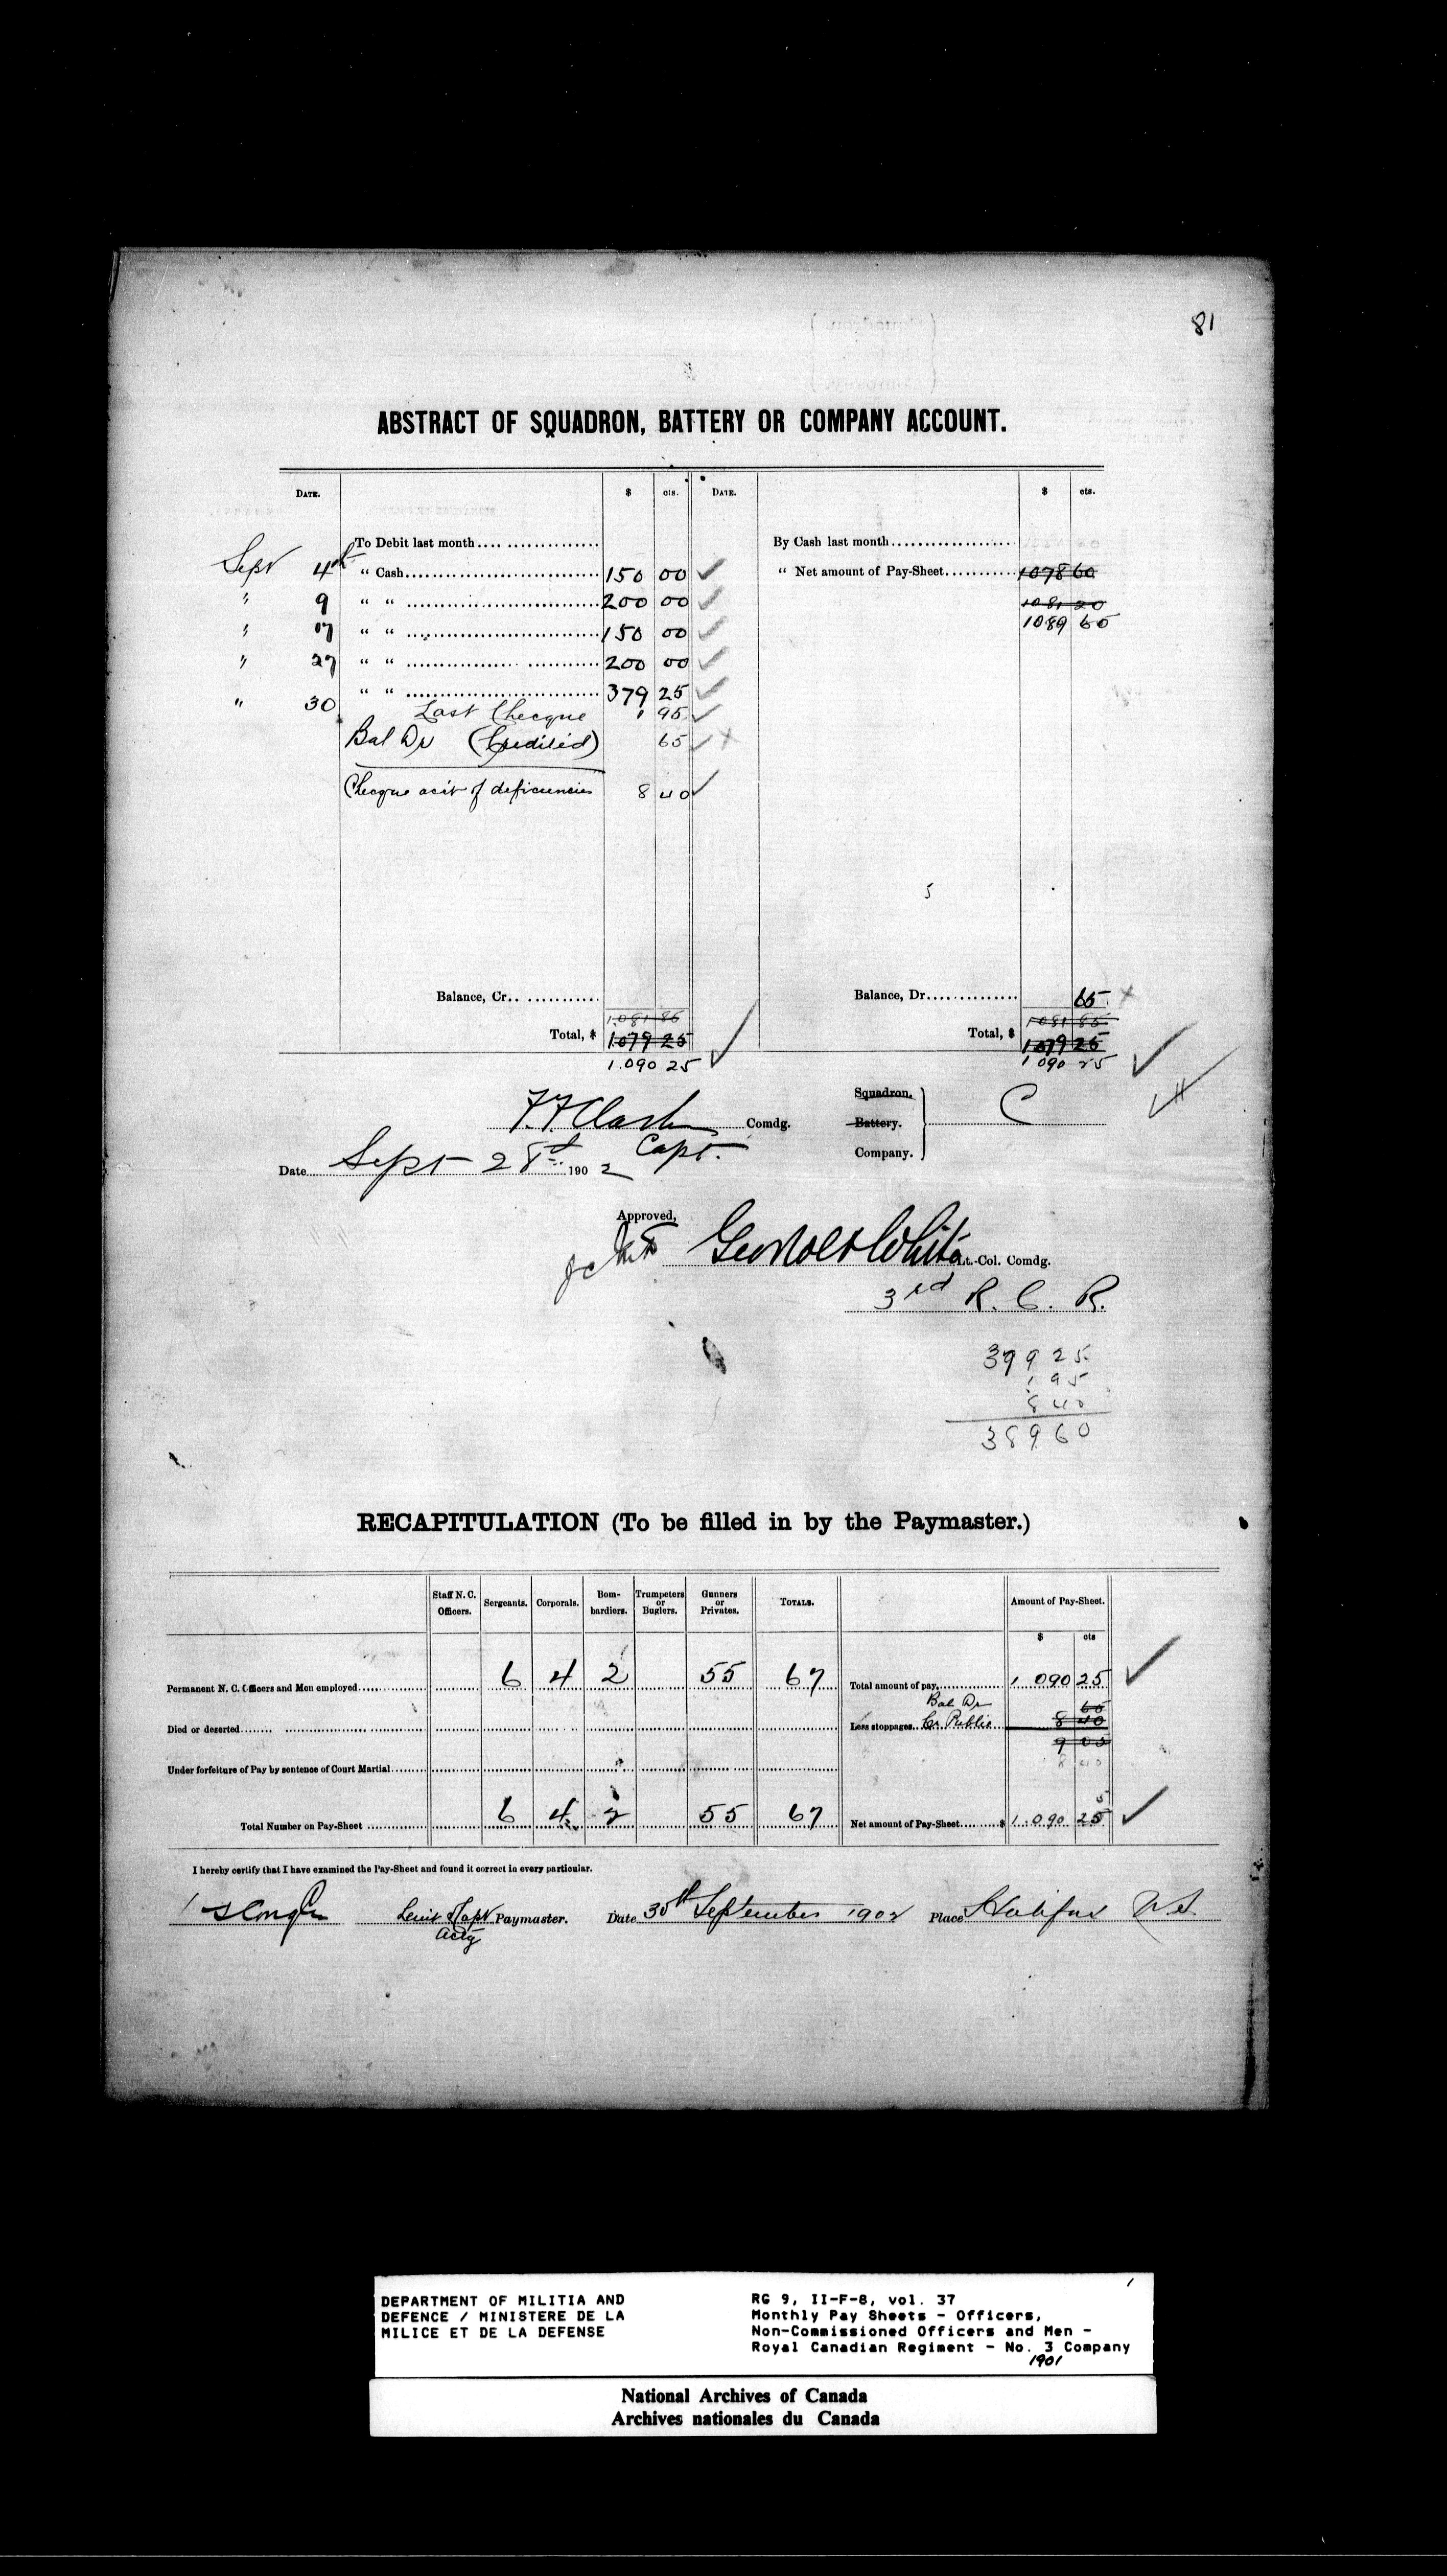 81
ABSTRACT OF SQUADRON, BATTERY OR COMPANY ACCOUNT.
DATE. $ cts. DATE. $ cts.
To Debit last month By Cash last month
Sept 4th " Cash 150 00 " Net amount of Pay-Sheet 1078 60
" 9 " " 200 00 1081 20
" 17 " " 150 00 1089 60
" 27 " " 200 00
" 30 " " 379 25
Last Checque 1 95
Bal Dr (Credited) 65
Checque acct of deficiencies 8 40
5
Balance, Cr. Balance, Dr. 65
1.081 85 1081 85
Total, $ 1.079 25 Total, $ 1079 25
1.090 25 1 090 25
Comdg. Squadron.
Battery. C
Company.
Capt.
Date Sept 28th 1902
Approved,
White Lt.-Col. Comdg.
3rd R. C. R.
379 25
1 95
8 40
389 60
RECAPITULATION (To be filled in by the Paymaster.)
Staff N. C. Officers. Sergeants. Corporals. Bombardiers. Trumpeters or Buglers. Gunners or Privates. TOTALS. Amount of Pay-Sheet.
$ cts
Permanent N. C. Officers and Men employed 6 4 2 55 67 Total amount of pay 1 090 25
Bal Dr 65
Died or deserted Less stoppages Cr Public 8 40
9 05
8 40
Under forfeiture of Pay by sentence of Court Martial
Total Number on Pay-Sheet 6 4 2 55 67 Net amount of Pay-Sheet $ 1.090 25
I hereby certify that I have examined the Pay-Sheet and found it correct in every particular.
Paymaster. Date 30th September 1902 Place Halifax N.S.
Actg
DEPARTMENT OF MILITIA AND
DEFENCE / MINISTERE DE LA
MILICE ET DE LA DEFENSE
RG 9, II-F-8, vol. 37
Monthly Pay Sheets - Officers,
Non-Commissioned Officers and Men -
Royal Canadian Regiment - No. 3 Company
1901
National Archives of Canada
Archives nationales du Canada